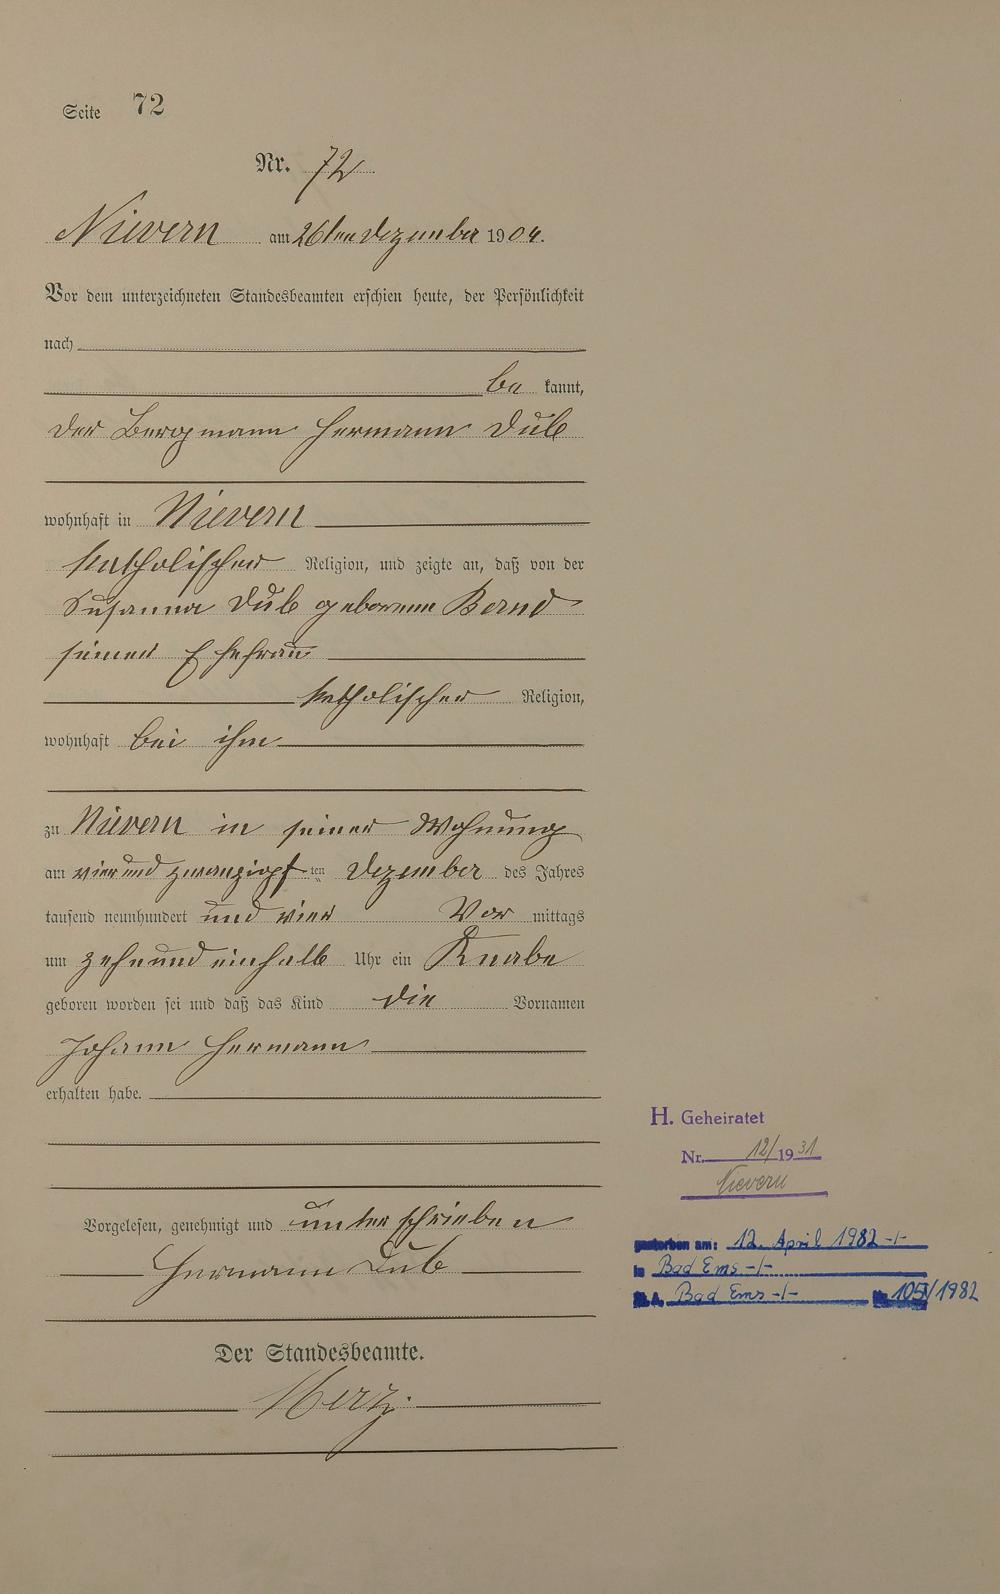 Seite 72
Nr. 72
Nievern am 26ten Dezember 1904.
Vor dem unterzeichneten Standesbeamten erschien heute, der Persönlichkeit
nach
be kannt,
der Bergmann Hermann Dub
wohnhaft in Nievern
katholischer Religion, und zeigte an, daß von der
Susanna Dub geborene Bernd
seiner Ehefrau
katholischer Religion,
wohnhaft bei ihm
zu Nievern in seiner Wohnung
am vierundzwanzigsten Dezember des Jahres
tausend neunhundert und vier Vor mittags
um zehnundeinhalb Uhr ein Knabe
geboren worden sei und daß das Kind die Vornamen
Johann Hermann
erhalten habe.
Vorgelesen, genehmigt und unterschrieben
Hermann Dub
Der Standesbeamte.
H. Geheiratet
Nr. 12/1931
Nievern
gestorben am: 12. April 1982 -/-
in Bad Ems -/-
St. A. Bad Ems -/- Nr. 105/1982